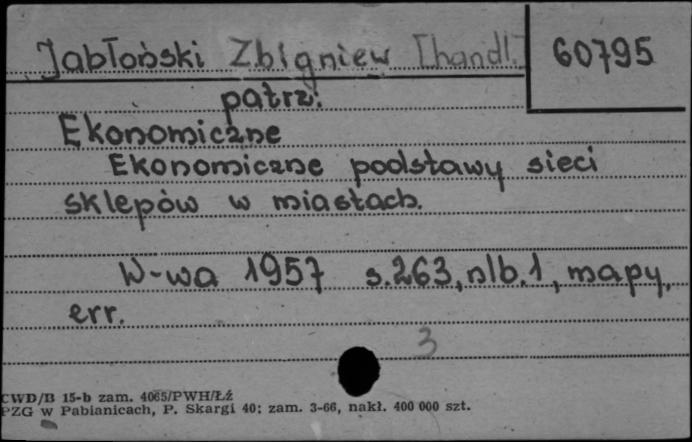 Jabłoński Zbigniew [handl.] 60795
patrz:
Ekonomiczne
Ekonomiczne podstawy sieci
sklepów w miastach.
W-wa 1957 s.263, nlb.1, mapy,
err.
3
CWD/B 15-b zam. 4065/PWH/Łź
PZG w Pabianicach, P. Skargi 40; zam. 3-66, nakł. 400 000 szt.